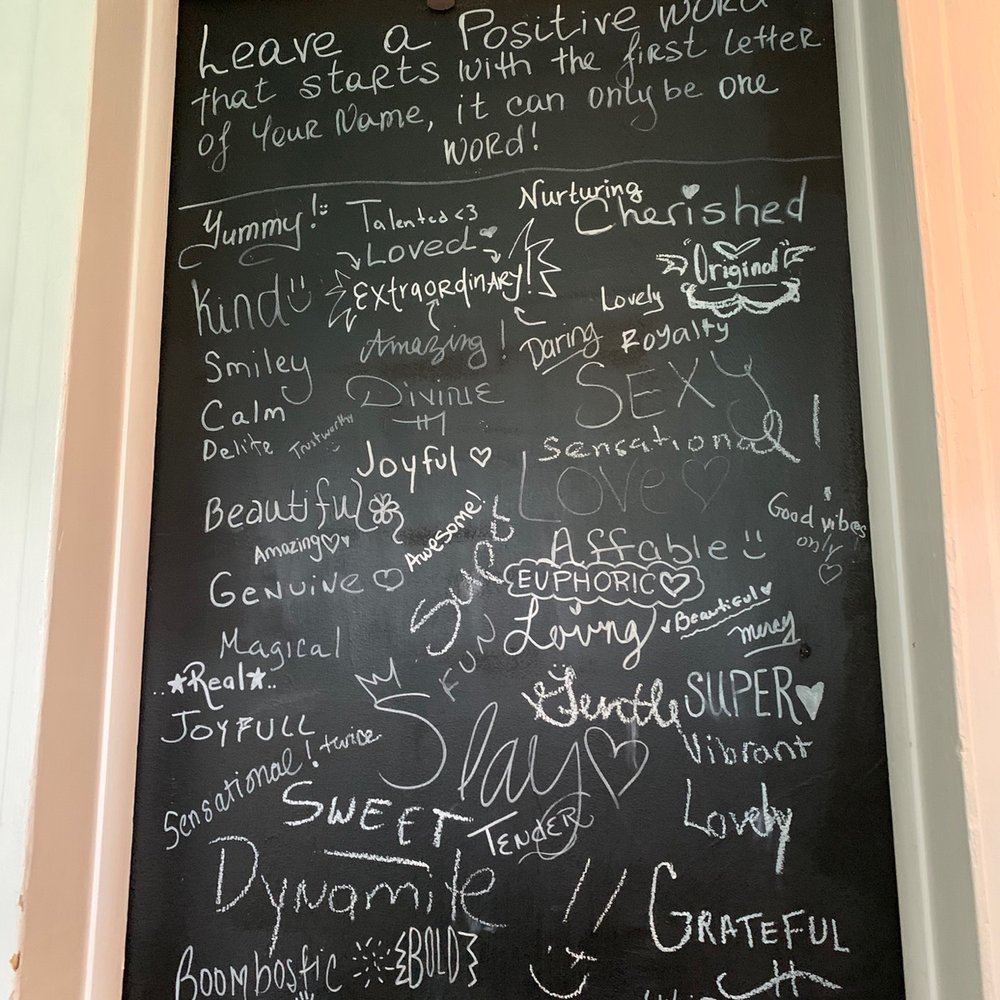 Leave a Positive word
that starts with the first letter
of Your Name, it can only be one
word!
Yummy!
Talented <3
Nurturing
Cherished
Loved
"Original"
Kind
Extraordinary!
Lovely
Amazing!
Daring
Royalty
Smiley
Divine
SEXY
Calm
Delite
Trustworthy
sensational!
Joyful
Love
Beautiful
Awesome!
Good vibes
only
Amazing
Affable
Genuine
EUPHORIC
Beautiful
Loving
mercy
Magical
FUN
..★Real★..
Gentle
SUPER
JOYFULL
Slay
Vibrant
Sensational! twice
SWEET
TENDER
Lovely
Dynamite
GRATEFUL
Boombostic
{BOLD}